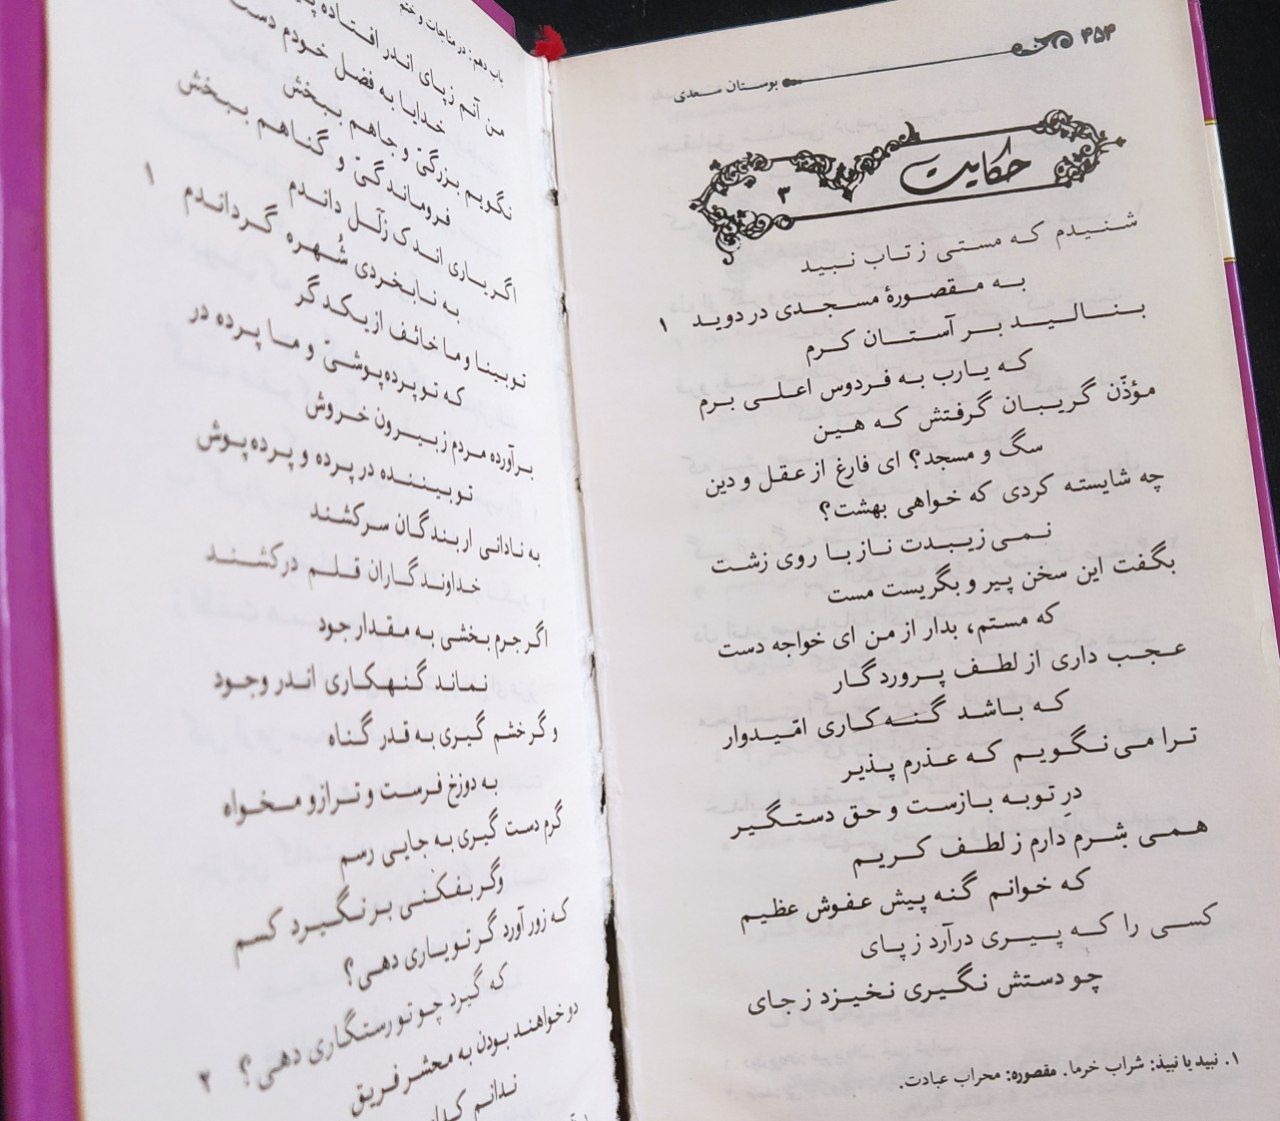 ۴۵۴
بوستان سعدی
حکایت
۳
شنیدم که مستی ز تاب نبید
به مقصورهٔ مسجدی در دوید ۱
بنالید بر آستان کرم
که یارب به فردوس اعلی برم
مؤذّن گریبان گرفتش که هین
سگ و مسجد؟ ای فارغ از عقل و دین
چه شایسته کردی که خواهی بهشت؟
نمی‌زیبدت ناز با روی زشت
بگفت این سخن پیر و بگریست مست
که مستم، بدار از من ای خواجه دست
عجب داری از لطف پروردگار
که باشد گنه‌کاری امّیدوار
ترا می‌نگویم که عذرم پذیر
درِ توبه بازست و حق دستگیر
همی شرم دارم ز لطف کریم
که خوانم گنه پیش عفوش عظیم
کسی را که پیری درآرد ز پای
چو دستش نگیری نخیزد ز جای
۱. نبید یا نبیذ: شراب خرما. مقصوره: محراب عبادت.
باب دهم: در مناجات و ختم
من آنم ز پای اندر افتاده
خدایا به فضل خودم دست
نگویم بزرگیّ و جاهم ببخش
فروماندگیّ و گناهم ببخش
اگر یاری اندک زلَل داندم
به نابخردی شُهره گرداندم ۱
تو بینا و ما خائف از یکدگر
که تو پرده‌پوشیّ و ما پرده در
برآورده مردم ز بیرون خروش
تو بیننده در پرده و پرده‌پوش
به نادانی ار بندگان سرکشند
خداوندگاران قلم درکشند
اگر جرم بخشی به مقدار جود
نماند گنهکاری اندر وجود
وگر خشم گیری به قدر گناه
به دوزخ فرست و ترازو مخواه
گرم دست گیری به جایی رسم
وگر بفکنی برنگیرد کسم
که زور آورد گر تو یاری دهی؟
که گیرد چو تو رستگاری دهی؟ ۲
دو خواهند بودن به محشر فریق
ندانم